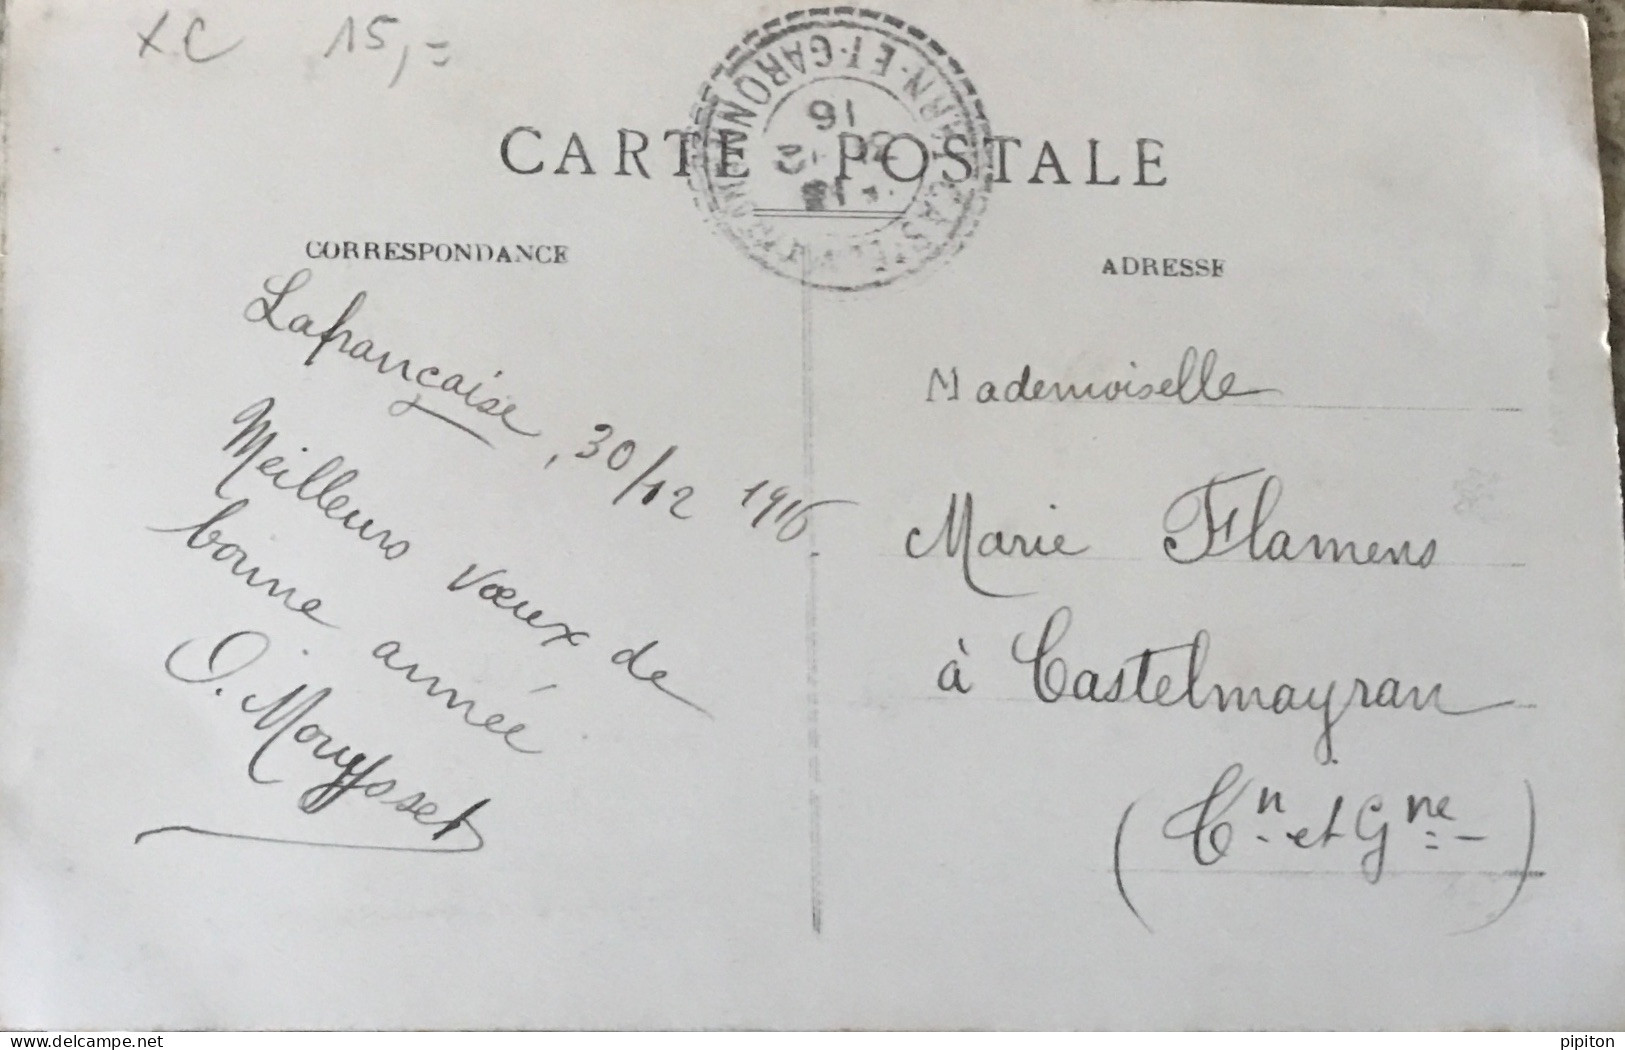 XC 15,=
TARN-ET-GARONNE
16
CARTE POSTALE
CORRESPONDANCE
Lafrançaise, 30/12 1916.
Meilleurs vœux de
bonne année
O. Mouysset
ADRESSE
Mademoiselle
Marie Flamens
à Castelmayran
(Tn et Gne)
delcampe.net
pipiton